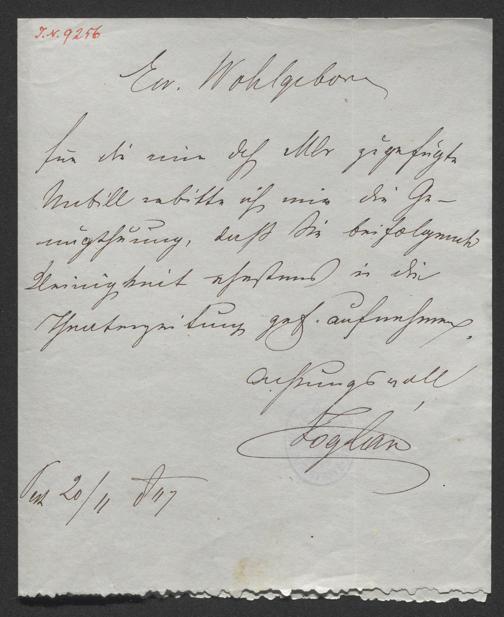 I.N. 9256
Ew. Wohlgeboren
für die mir zugefügte
Unbill erbitte ich mir die Ge-
nugthuung, daß Sie beifolgende
Kleinigkeit ehestens in die
Theaterzeitung gef. aufnehmen.
Achtungsvoll
Pest 20/11